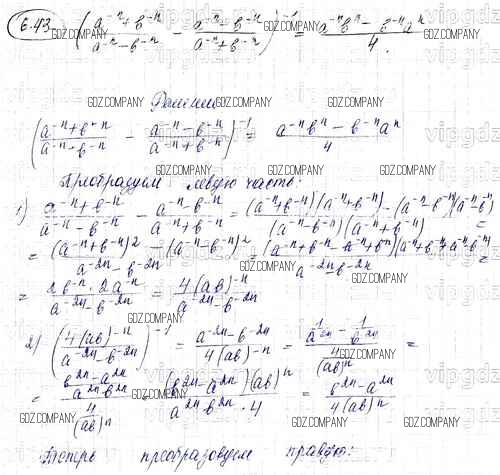 6.43 ( (a⁻ⁿ + b⁻ⁿ)/(a⁻ⁿ - b⁻ⁿ) - (a⁻ⁿ - b⁻ⁿ)/(a⁻ⁿ + b⁻ⁿ) )⁻¹ = (a⁻ⁿbⁿ - b⁻ⁿaⁿ)/4.
Решение
( (a⁻ⁿ + b⁻ⁿ)/(a⁻ⁿ - b⁻ⁿ) - (a⁻ⁿ - b⁻ⁿ)/(a⁻ⁿ + b⁻ⁿ) )⁻¹ = (a⁻ⁿbⁿ - b⁻ⁿaⁿ)/4
Преобразуем левую часть:
1) (a⁻ⁿ + b⁻ⁿ)/(a⁻ⁿ - b⁻ⁿ) - (a⁻ⁿ - b⁻ⁿ)/(a⁻ⁿ + b⁻ⁿ) = ((a⁻ⁿ + b⁻ⁿ)(a⁻ⁿ + b⁻ⁿ) - (a⁻ⁿ - b⁻ⁿ)(a⁻ⁿ - b⁻ⁿ))/((a⁻ⁿ - b⁻ⁿ)(a⁻ⁿ + b⁻ⁿ)) =
= ((a⁻ⁿ + b⁻ⁿ)² - (a⁻ⁿ - b⁻ⁿ)²)/(a⁻²ⁿ - b⁻²ⁿ) = ((a⁻ⁿ + b⁻ⁿ - a⁻ⁿ + b⁻ⁿ)(a⁻ⁿ + b⁻ⁿ + a⁻ⁿ - b⁻ⁿ))/(a⁻²ⁿ - b⁻²ⁿ) =
= (2b⁻ⁿ · 2a⁻ⁿ)/(a⁻²ⁿ - b⁻²ⁿ) = 4(ab)⁻ⁿ/(a⁻²ⁿ - b⁻²ⁿ)
2) ( 4(ab)⁻ⁿ/(a⁻²ⁿ - b⁻²ⁿ) )⁻¹ = (a⁻²ⁿ - b⁻²ⁿ)/(4(ab)⁻ⁿ) = (1/a²ⁿ - 1/b²ⁿ)/(4/(ab)ⁿ) =
= ((b²ⁿ - a²ⁿ)/(a²ⁿb²ⁿ))/(4/(ab)ⁿ) = ((b²ⁿ - a²ⁿ)(ab)ⁿ)/(a²ⁿb²ⁿ · 4) = (b²ⁿ - a²ⁿ)/(4(ab)ⁿ)
Теперь преобразуем правую: